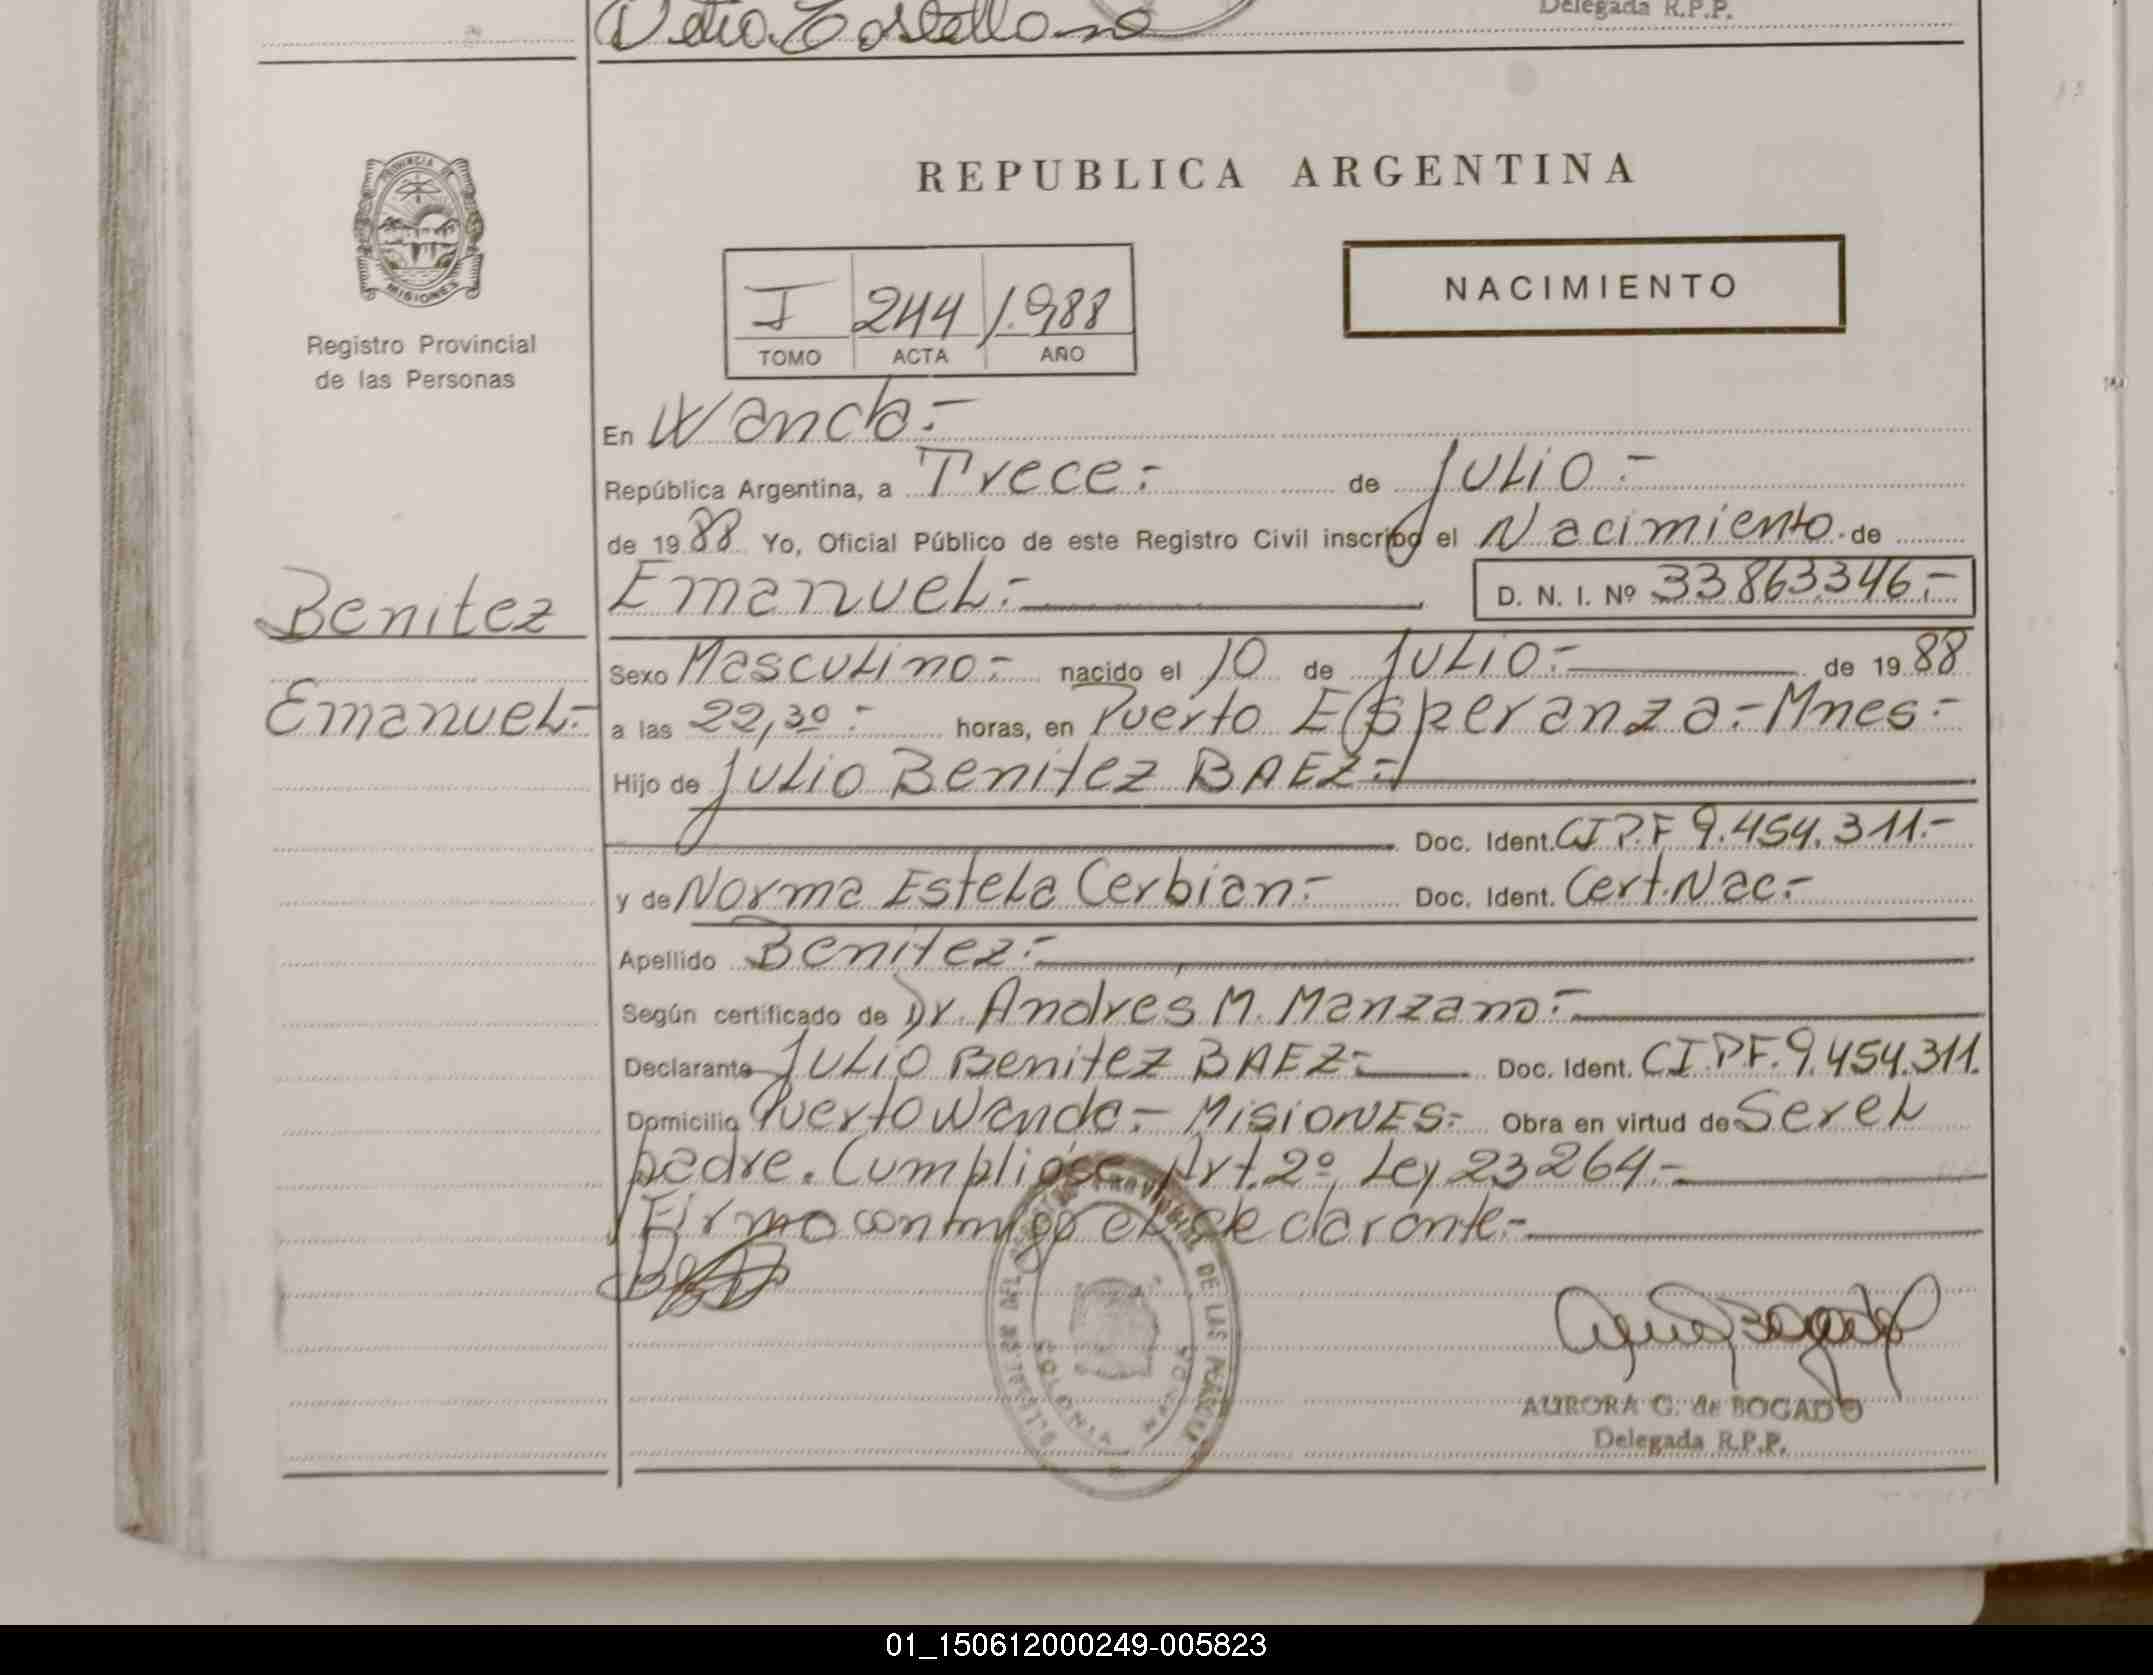 Delegada R.P.P.
PROVINCIA DE
MISIONES
Registro Provincial
de las Personas
REPUBLICA ARGENTINA
NACIMIENTO
I 244 1.988
TOMO ACTA AÑO
En Wanda.-
República Argentina, a Trece.- de Julio.-
de 1988 Yo, Oficial Público de este Registro Civil inscribo el Nacimiento de
Benitez
Emanuel.-
Emanuel.- D. N. I. Nº 33.863.346.-
Sexo Masculino.- nacido el 10 de Julio.- de 1988
a las 22,30.- horas, en Puerto Esperanza.- Mnes.-
Hijo de Julio Benitez BAEZ.-
Doc. Ident. CI P.F 9.454.311.-
y de Norma Estela Cerbian.- Doc. Ident. Cert.Nac.-
Apellido Benitez.-
Según certificado de Dr. Andres M. Manzano.-
Declarante Julio Benitez BAEZ.- Doc. Ident. CI.P.F. 9.454.311.
Domicilio Puerto Wanda.- MISIONES.- Obra en virtud de Ser el
padre. Cumplióse Art. 2º Ley 23264.-
Firmo conmigo el declarante.-
DEL REGISTRO PROVINCIAL DE LAS PERSONAS
COLONIA WANDA
AURORA G. de BOGADO
Delegada R.P.P.
01_150612000249-005823